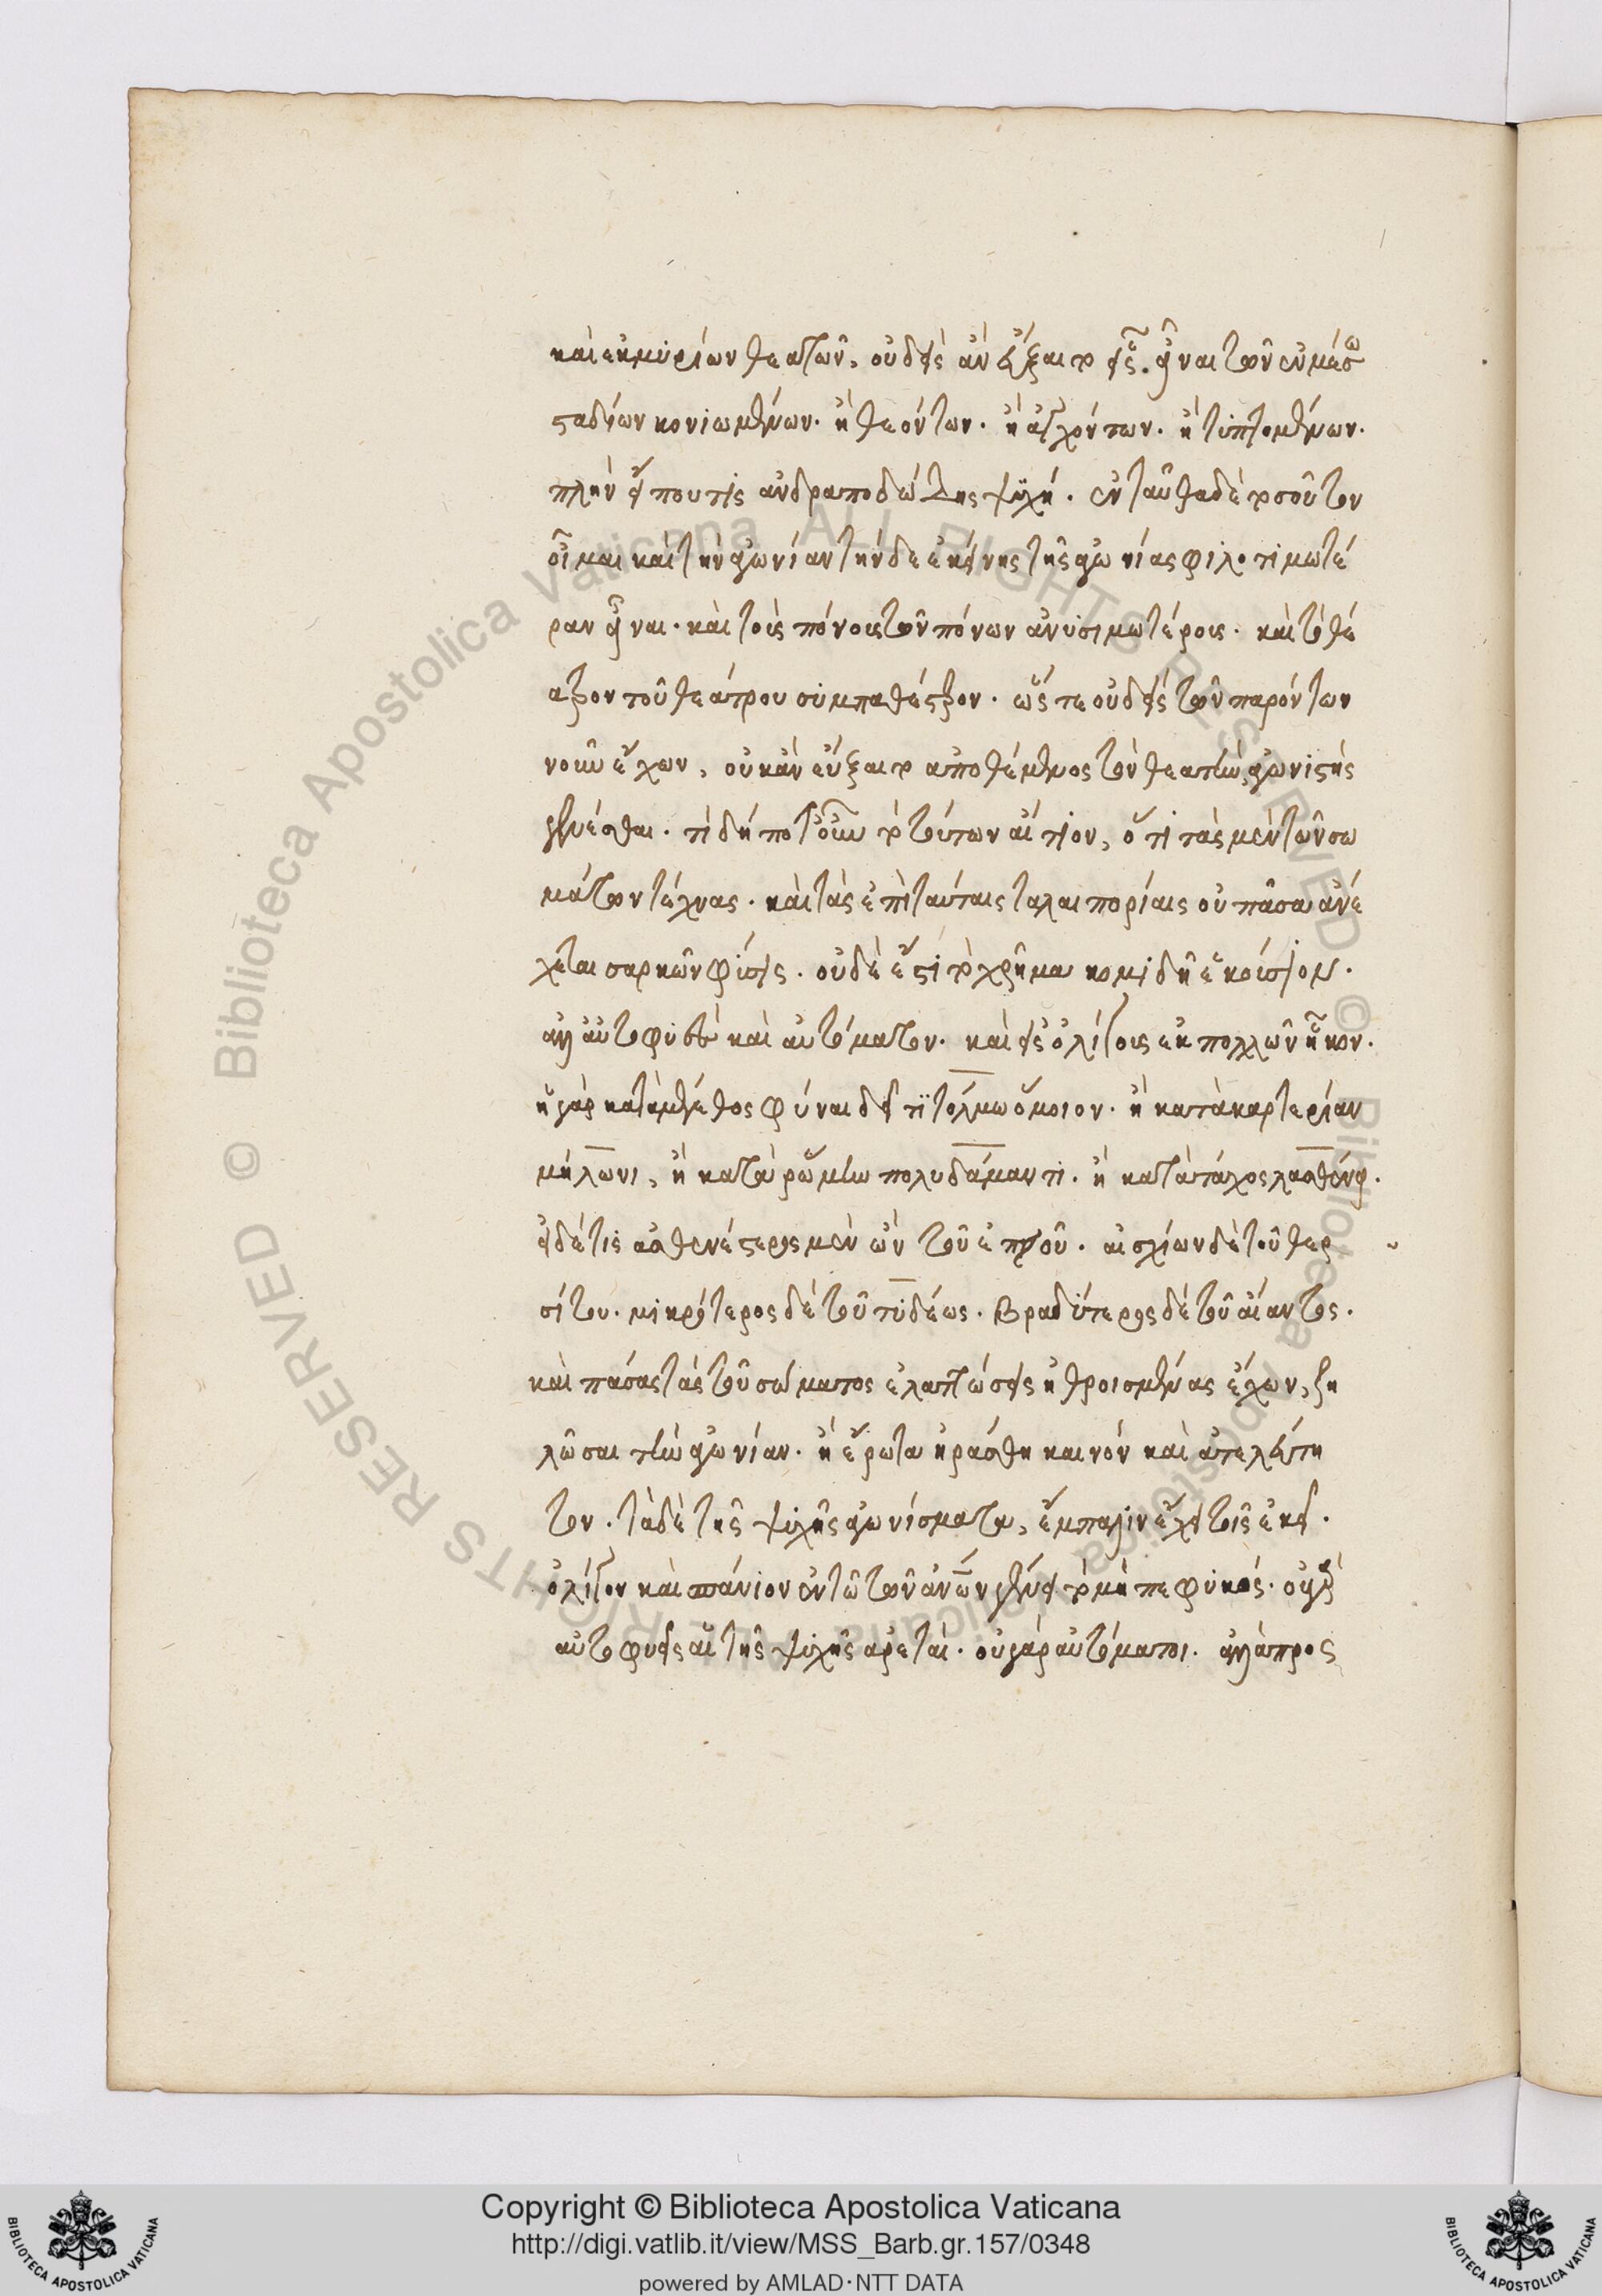 καὶ ἐκ μυρίων θεατῶν, οὐδεὶς ἂν εὔξαιτο εἷς εἶναι τῶν ἐν μέσω
σταδίων κονιωμένων. ἢ θεόντων. ἢ ἀγχόντων. ἢ τυπτομένων.
πλὴν εἴ που τὶς ἀνδραποδώδης ψυχή. ἐνταῦθα δὲ τοσοῦτον
οἶμαι καὶ τὴν ἀγωνίαν τήνδε ἐκείνης τῆς ἀγωνίας φιλοτιμωτέ
ραν εἶναι. καὶ τοὺς πόνους τῶν πόνων ἀνυσιμωτέρους. καὶ τὸ θέ
ατρον τοῦ θεάτρου συμπαθέστερον. ὥστε οὐδεὶς τῶν παρόντων
νοῦν ἔχων, οὐκ ἂν εὔξαιτο ἀποθέμενος τὸν θεατὴν, ἀγωνιστὴς
γενέσθαι. τί δή ποτ' οὖν τὸ τούτων αἴτιον, ὅτι τὰς μὲν τῶν σω
μάτων τέχνας. καὶ τὰς ἐπὶ ταύταις ταλαιπορίαις οὐ πᾶσα ἀνέ
χεται σαρκῶν φύσις. οὐδὲ ἔστι τὸ χρῆμα κομιδῆ ἑκούσιον.
ἀλλ' αὐτοφυὲς καὶ αὐτόματον. καὶ εἰς ὀλίγους ἐκ πολλῶν ἧκον.
ἢ γὰρ κατὰ μέγεθος φύναι δεῖ τιτόρμω ὅμοιον. ἢ κατὰ καρτερίαν
μήλωνι, ἢ κατὰ ῥώμην πολυδάμαντι. ἢ κατὰ τάχος λασθένει.
εἰ δέ τις ἀσθενέστερος μὲν ὢν τοῦ ἐπειοῦ. αἰσχίων δὲ τοῦ θερ
σίτου. μικρότερος δὲ τοῦ τυδέως. βραδύτερος δὲ τοῦ αἴαντος.
καὶ πάσας τὰς τοῦ σώματος ἐλαττώσεις ἠθροισμένας ἔχων, ζη
λῶσαι τὴν ἀγωνίαν. ἢ ἔρωτα ἠράσθη καινὸν καὶ ἀτελεύτη
τον. τὰ δὲ τῆς ψυχῆς ἀγωνίσματα, ἔμπαλιν ἔχει τοῖς ἐκεῖ.
ὀλίγον καὶ σπάνιον ἐν τῶ τῶν ἀνων γένει τὸ μὴ πεφυκός. οὐ γὰρ
αὐτοφυεῖς αἱ τῆς ψυχῆς ἀρεταὶ. οὐ γὰρ αὐτόματοι. ἀλλὰ προς
Copyright © Biblioteca Apostolica Vaticana
http://digi.vatlib.it/view/MSS_Barb.gr.157/0348
powered by AMLAD·NTT DATA